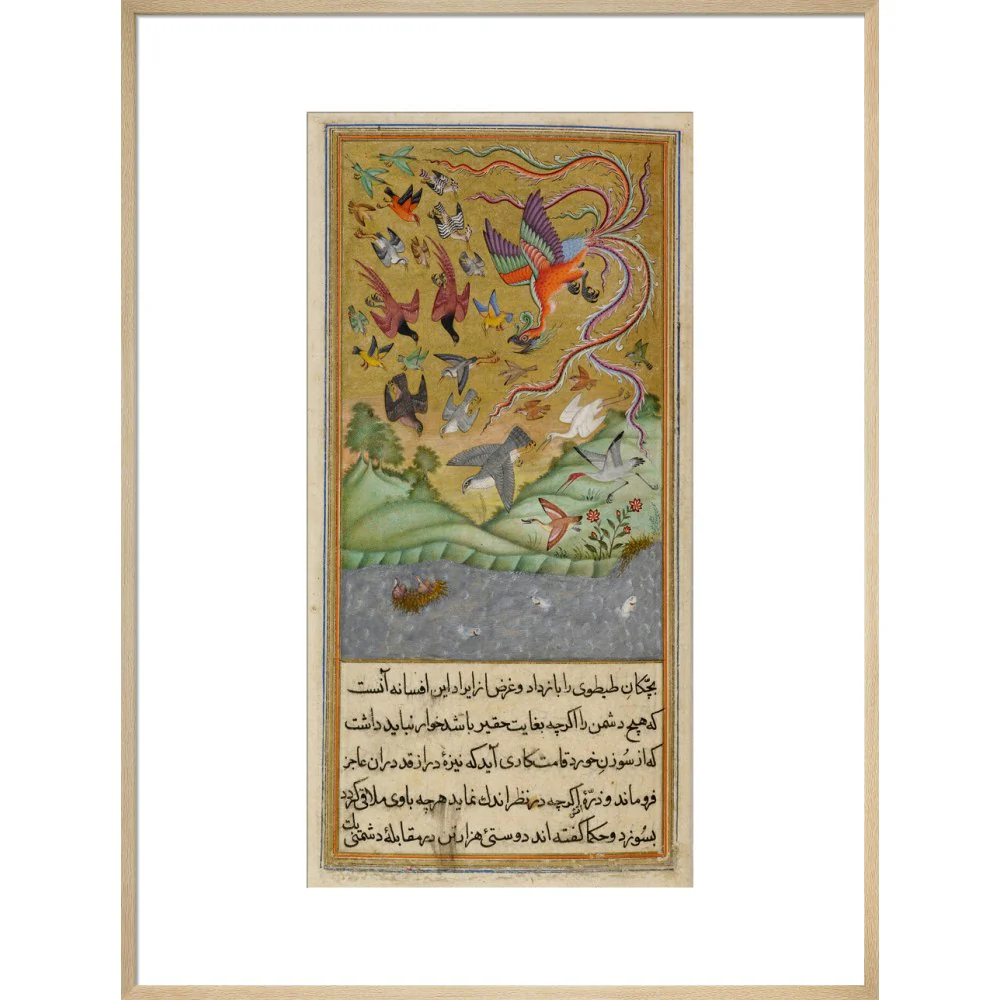 بچکانِ طیطوی را باز داد و غرض از ایراد این افسانه آنست
که هیچ دشمن را اکرچه بغایت حقیر باشد خوار نباید داشت
که از سُوزنِ خورد قامت کاری آید که نیزهٔ دراز قد در ان عاجز
فرو ماند و ذرّهٔ آتش اکرچه در نظر اندك نماید هرچه باوی ملاقی کردد
بسُوزد و حکما کفته اند دوستیٔ هزار تن در مقابلهٔ دشمنیٔ یك